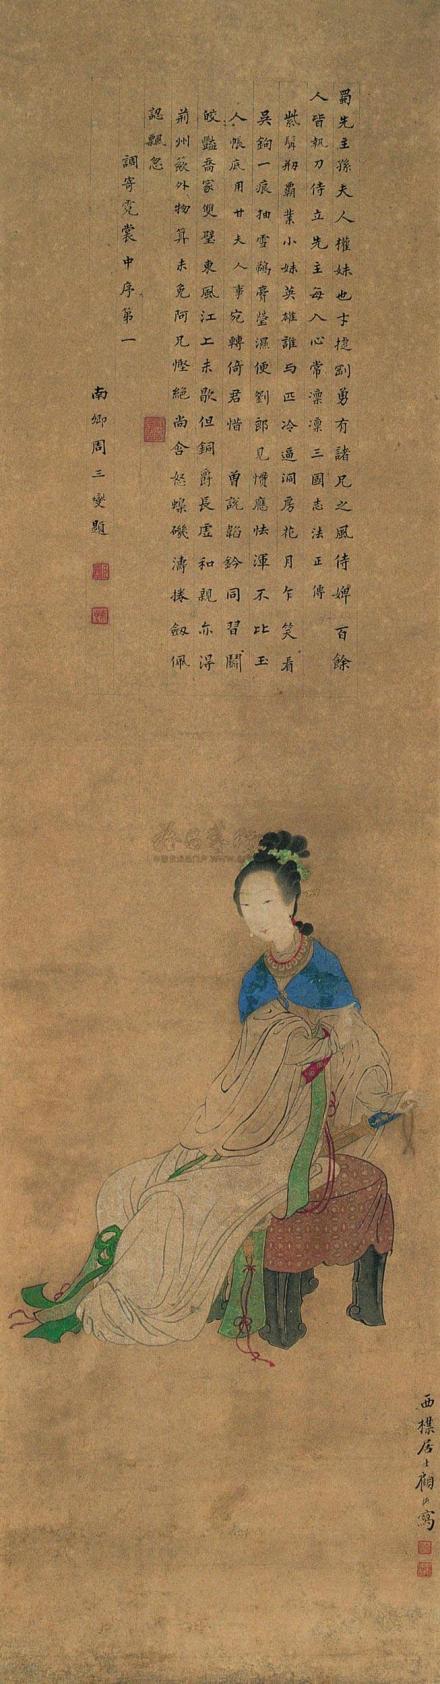 蜀先主孫夫人權妹也才捷剛勇有諸兄之風侍婢百餘
人皆執刀侍立先主每入心常凜凜三國志法正傳
紫髯剏霸業小妹英雄誰与匹冷逼洞房花月乍笑看
吳鉤一痕抽雪鷿膏瑩濕便劉郎見慣應怯渾不比玉
人帳底用甘夫人事宛轉倚君惜 曾說韜鈐同習鬭
皎豔喬家雙璧東風江上未歇但銅爵長虛和親亦得
荊州簌外物算未免阿兄慳絕尚含怒蟂磯濤捲劔佩
認飄忽
調寄霓裳中序第一
南卿周三燮題
西楳居士顧洛寫